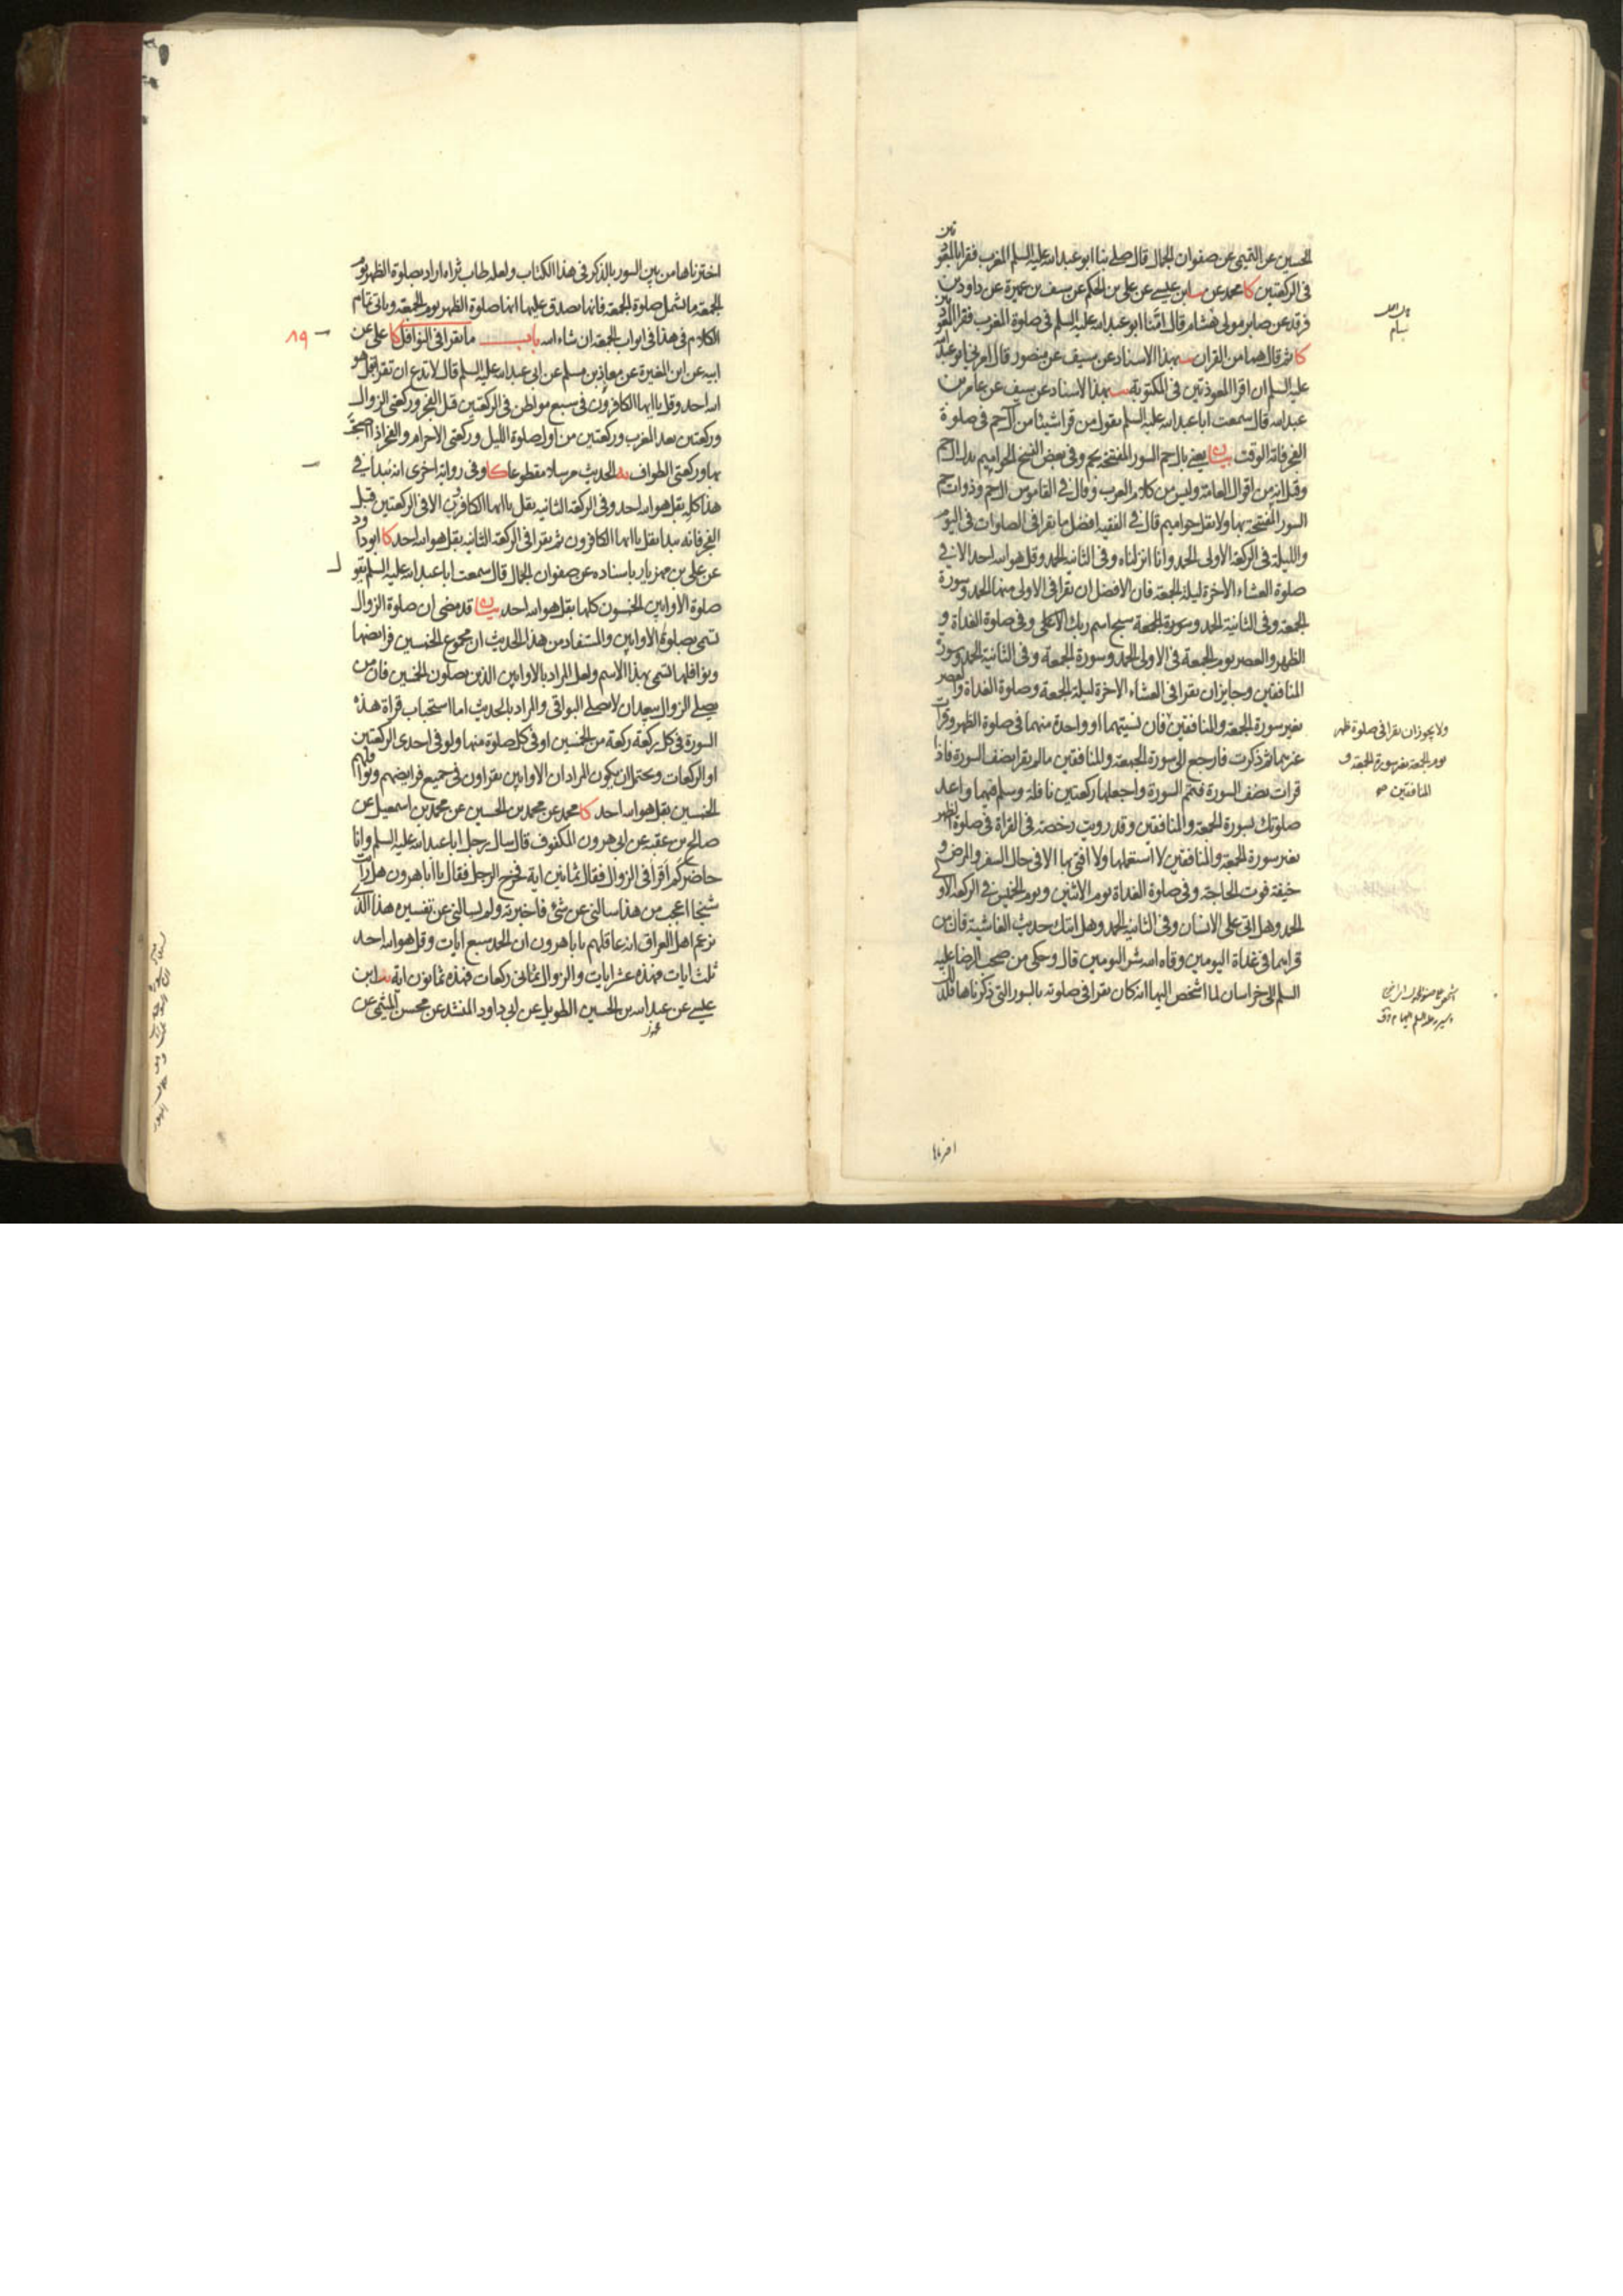 الحسين عن التميمى عن صفوان الجمال قال صلى بنا ابو عبد الله عليه السلم المغرب فقرا بالمعوذتين
فى الركعتين كا محمد عن ابن عيسى عن على بن الحكم عن سيف بن عميرة عن داود بن
فرقد عن صابر مولى هشام قال امّنا ابو عبد الله عليه السلم فى صلوة المغرب فقرا المعوذتين
كا ثم قال هما من القران بهذا الاسناد عن سيف عن منصور قال امرنى ابو عبد الله
عليه السلم ان اقرا المعوذتين فى المكتوبة بهذا الاسناد عن سيف عن عامر بن
عبد الله قال سمعت ابا عبد الله عليه السلم يقول من قرا شيئا من ال حم فى صلوة
الفجر فاته الوقت بيان يعنى بال حم السور المفتتحة بحم وفى بعض النسخ الحواميم بدل ال حم
وقيل انه من اقوال العامة وليس من كلام العرب وقال فى القاموس ال حم وذوات حم
السور المفتتحة بها ولا تقل حواميم قال فى الفقيه افضل ما يقرا فى الصلوات فى اليوم
والليلة فى الركعة الاولى الحمد وانا انزلناه وفى الثانية الحمد وقل هو الله احد الا فى
صلوة العشاء الاخرة ليلة الجمعة فان الافضل ان يقرا فى الاولى منها الحمد وسورة
الجمعة وفى الثانية الحمد وسورة الجمعة سبح اسم ربك الاعلى وفى صلوة الغداة و
الظهر والعصر يوم الجمعة فى الاولى الحمد وسورة الجمعة وفى الثانية الحمد وسورة
المنافقين وجايز ان يقرا فى العشاء الاخرة ليلة الجمعة وصلوة الغداة والعصر
بغير سورة الجمعة والمنافقين فان نسيتهما او واحدة منهما فى صلوة الظهر وقرات
غيرهما ثم ذكرت فارجع الى سورة الجمعة والمنافقين ما لم تقرا نصف السورة فاذا
قرات نصف السورة فتمم السورة واجعلها ركعتين نافلة وسلم فيهما واعد
صلوتك بسورة الجمعة والمنافقين وقد رويت رخصة فى القراة فى صلوة الظهر
بغير سورة الجمعة والمنافقين لا استعملها ولا افتى بها الا فى حال السفر والمرض و
خيفة فوت الحاجة وفى صلوة الغداة يوم الاثنين ويوم الخميس فى الركعة الاولى
الحمد وهل اتى على الانسان وفى الثانية الحمد وهل اتيك حديث الغاشية فان من
قراهما فى غداة اليومين وقاه الله شر اليومين قال وحكى من صحب الرضا عليه
السلم الى خراسان لما اشخص اليها انه كان يقرا فى صلوته بالسور التى ذكرناها فلذلك
ولا يجوز ان يقرا فى صلوة ظهر
يوم الجمعة بغير سورة الجمعة و
المنافقين صح
اخترناها
اخترناها من بين السور بالذكر فى هذا الكتاب ولعله طاب ثراه اراد بصلوة الظهر يوم
الجمعة ما يشمل صلوة الجمعة فانها يصدق عليها انها صلوة الظهر يوم الجمعة وياتى تمام
الكلام فى هذا فى ابواب الجمعة ان شاء الله باب ما يقرا فى النوافل كا على عن
٨٩
ابيه عن ابن المغيرة عن معاذ بن مسلم عن ابى عبد الله عليه السلم قال لا تدع ان تقرا بقل هو
الله احد وقل يا ايها الكافرون فى سبع مواطن فى الركعتين قبل الفجر وركعتى الزوال
وركعتين بعد المغرب وركعتين من اول صلوة الليل وركعتى الاحرام والفجر اذا اصبحت
بها وركعتى الطواف يه الحديث مرسلا مقطوعا كا وفى رواية اخرى انه يبدا فى
هذا كله بقل هو الله احد وفى الركعة الثانية بقل يا ايها الكافرون الا فى الركعتين قبل
الفجر فانه يبدا بقل يا ايها الكافرون ثم يقرا فى الركعة الثانية بقل هو الله احد كا ابو داود
عن على بن مهزيار باسناده عن صفوان الجمال قال سمعت ابا عبد الله عليه السلم يقول
صلوة الاوابين الخمسون كلها بقل هو الله احد بيان قد مضى ان صلوة الزوال
تسمى بصلوة الاوابين والمستفاد من هذا الحديث ان مجموع الخمسين فرايضها
ونوافلها تسمى بهذا الاسم ولعل المراد بالاوابين الذين يصلون الخمسين فان من
يصلى الزوال يبعد ان لا يصلى البواقى والمراد بالحديث اما استحباب قراة هذه
السورة فى كل ركعة ركعة من الخمسين او فى كل صلوة منها ولو فى احدى الركعتين
او الركعات ويحتمل ان يكون المراد ان الاوابين يقراون فى جميع فرايضهم ونوافلهم
الخمسين بقل هو الله احد كا محمد عن محمد بن الحسين عن محمد بن اسمعيل عن
صالح بن عقبة عن ابى هرون المكفوف قال سال رجل ابا عبد الله عليه السلم وانا
حاضر كم اقرا فى الزوال فقال ثمانين اية فخرج الرجل فقال يا ابا هرون هل رايت
شيخا اعجب من هذا سالنى عن شئ فاخبرته ولم يسالنى عن تفسيره هذا الذى
يزعم اهل العراق انه عاقلهم يا با هرون ان الحمد سبع ايات وقل هو الله احد
ثلث ايات فهذه عشر ايات والزوال ثمانى ركعات فهذه ثمانون اية يب ابن
عيسى عن عبد الله بن الحسين الطويل عن ابى داود المنشد عن محسن الميثمى عن